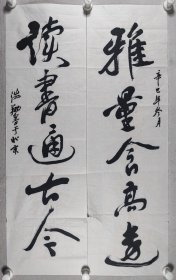 辛巳年冬月
雅量含高远
读书通古今
于北京